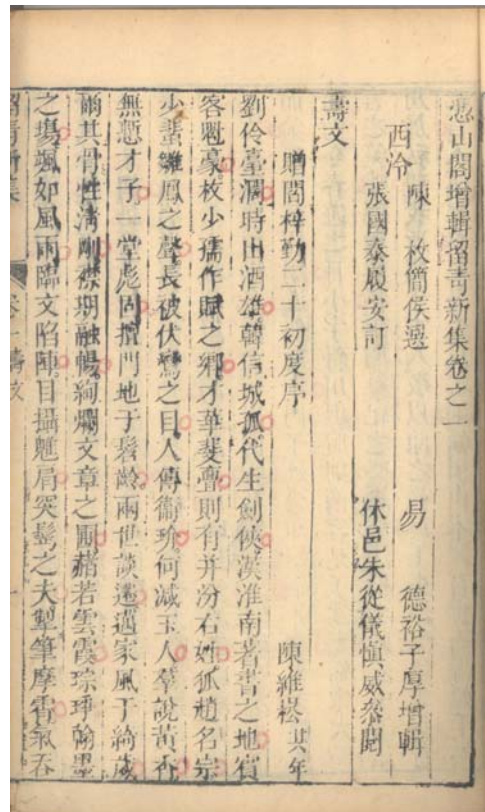 憑山閣增輯留青新集卷之一
西泠
陳枚簡侯選
張國泰履安訂
易德裕子厚增輯
休邑朱從儀愼威叅閱
壽文
贈閻梓勤二十初度序 陳維崧 其年
劉伶臺濶時出酒雄韓信城孤代生劍俠漢淮南著書之地賓
客魁豪枚少孺作賦之鄉才華斐亹則有幷汾右姓狐趙名宗
少蜚雛鳳之聲長被伏鸞之目人傳衞玠何減玉人羣說黃香
無慙才子一堂彪固擅門地于髫齡兩世談遷遇家風于綺歲
爾其骨性淸剛襟期融暢絢爛文章之囿赭若雲霞琮琤翰墨
之塲颯如風雨臨文陷陣目攝魋肩突鬢之夫掣筆摩霄氣吞
留青新集
卷一 壽文
一